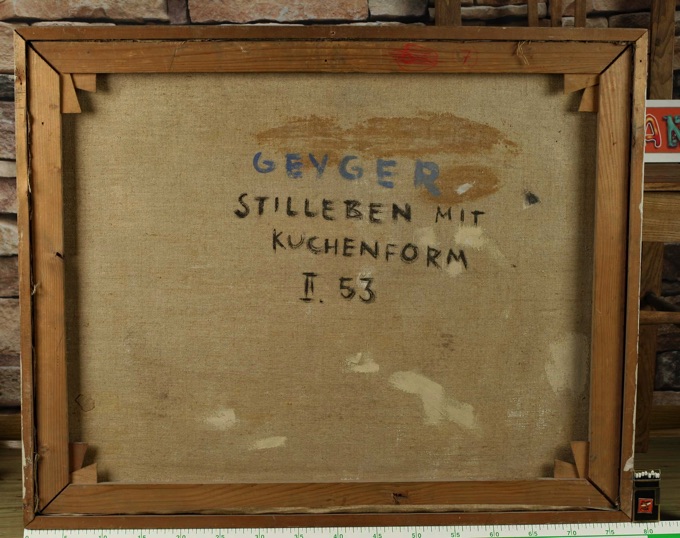 GEYGER
STILLEBEN MIT
KUCHENFORM
II. 53